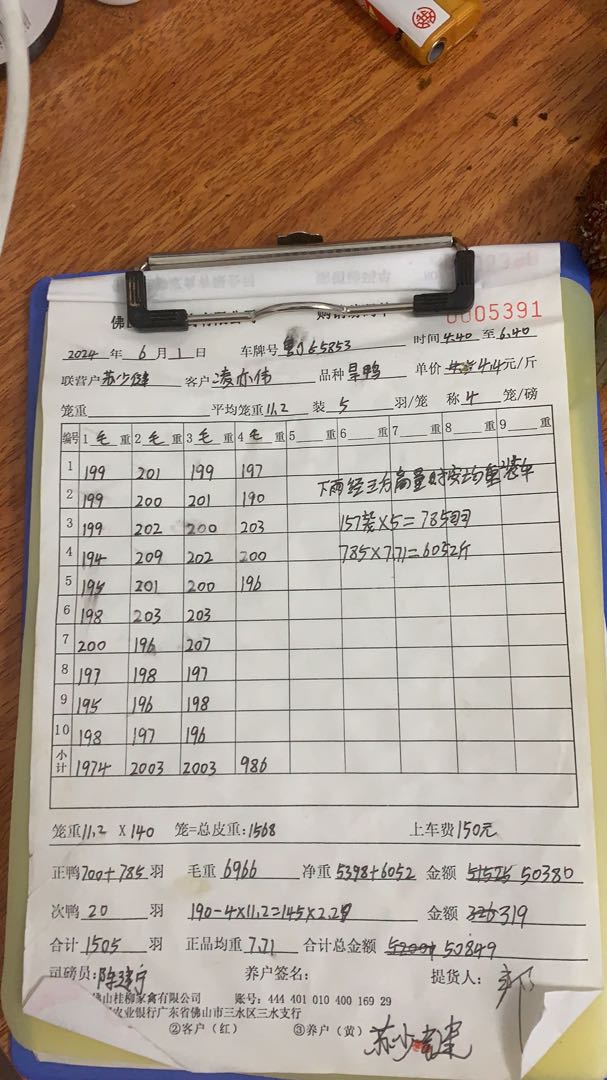 0005391
2024 年 6 月 1 日 车牌号 65853 时间 4:40 至 6:40
联营户 苏少健 客户 凌亦伟 品种 旱鸭 单价 4.4 元/斤
笼重 平均笼重 11.2 装 5 羽/笼 称 4 笼/磅
编号 1 毛 重 2 毛 重 3 毛 重 4 毛 重 5 重 6 重 7 重 8 重 9 重
1 199 201 199 197
2 199 200 201 190
下雨经王方商量时安均重装车
3 199 202 200 203
157装×5=785羽
4 194 209 202 200
785×7.71=6052斤
5 195 201 200 196
6 198 203 203
7 200 196 207
8 197 198 197
9 195 196 198
10 198 197 196
小计 1974 2003 2003 986
笼重 11.2 × 140 笼=总皮重: 1568 上车费 150元
正鸭 700+785 羽 毛重 6966 净重 5398+6052 金额 51525 50380
次鸭 20 羽 190-4×11.2=145×2.2 金额 326 319
合计 1505 羽 正品均重 7.71 合计总金额 50849
司磅员: 养户签名: 提货人:
佛山桂柳家禽有限公司 账号: 444 401 010 400 169 29
农业银行广东省佛山市三水区三水支行
②客户（红） ③养户（黄）